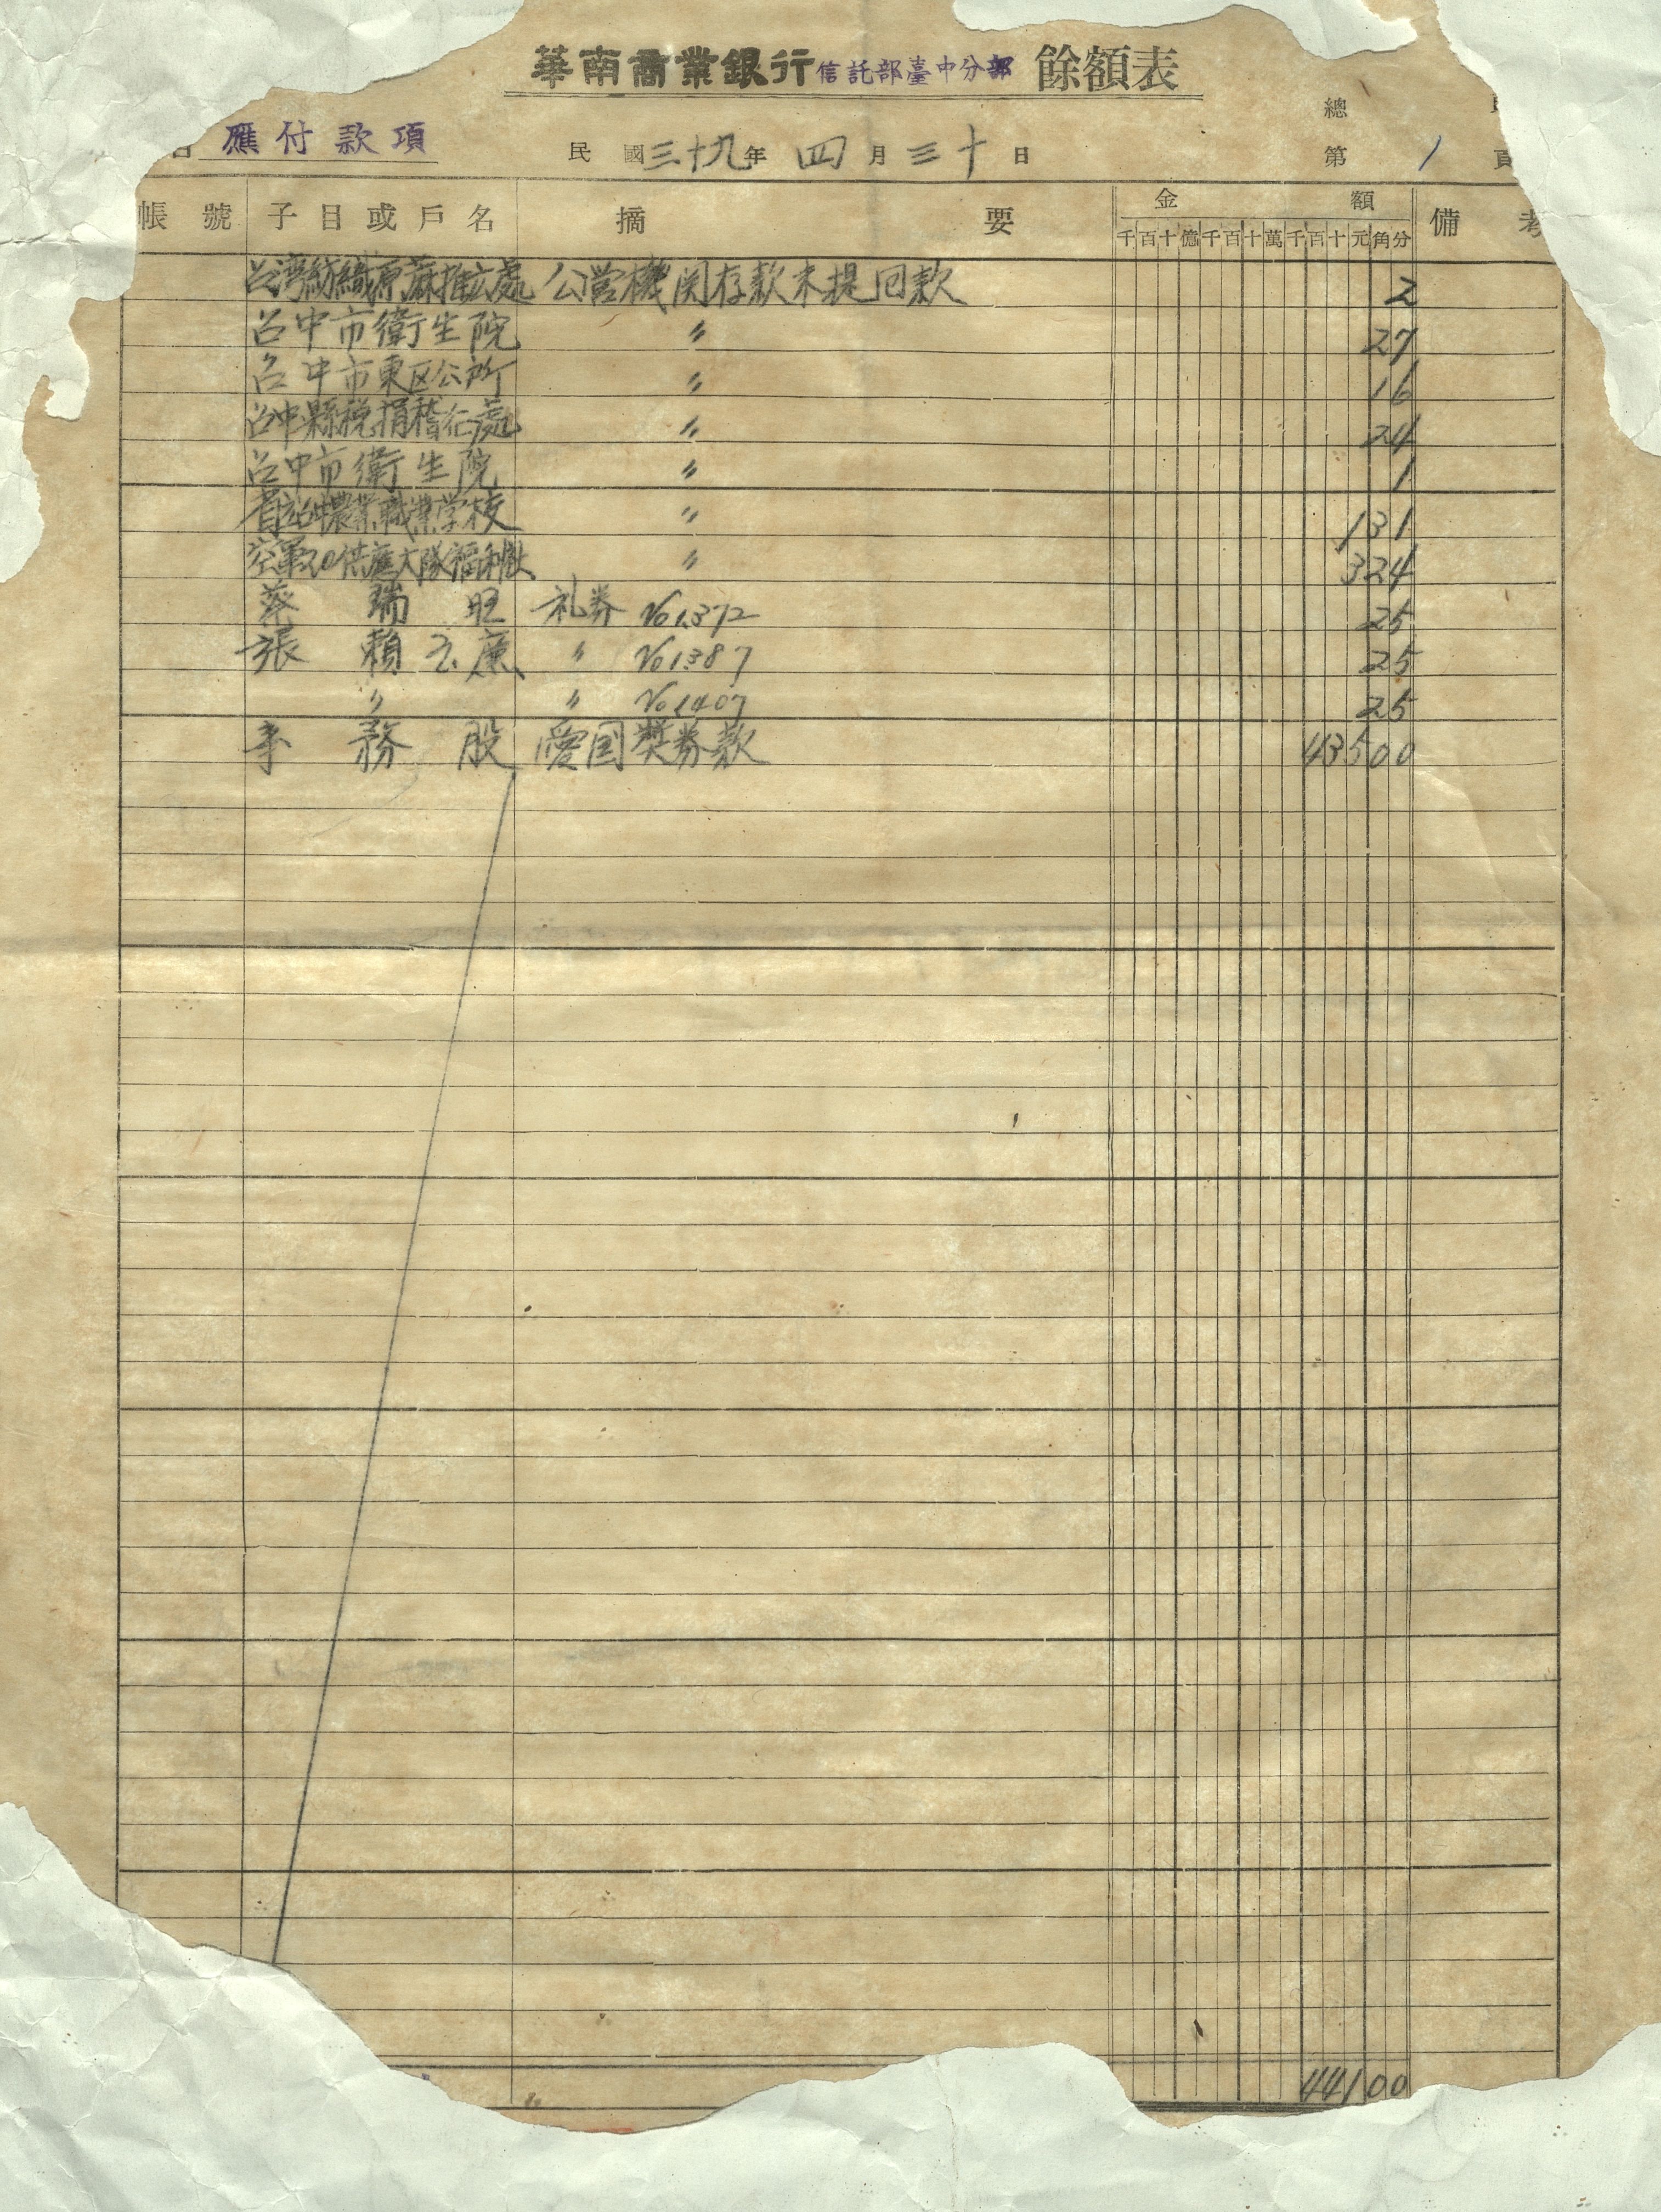 華南商業銀行信託部臺中分部 餘額表
總
應付款項 民國三十九年四月三十日 第1頁
金額
帳號 子目或戶名 摘要 千百十億千百十萬千百十元角分 備考
台湾紡織原蔴推広處 公営機関存款未提回款 2
台中市衛生院 〃 27
台中市東区公所 〃 16
台中縣税捐稽征處 〃 24
台中市衛生院 〃 1
農業職業学校 〃 131
空軍 供應大隊福利 〃 324
蔡瑞旺 礼券 No1372 25
張賴玉 〃 No1387 25
〃 〃 No1407 25
事務股 愛国奬券款 43500
44100